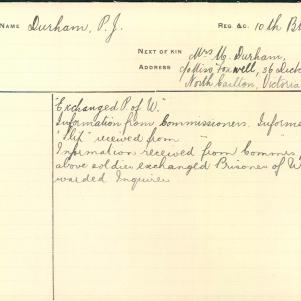 NAME Durham, P.J. REG &c. 10th B
NEXT OF KIN Mrs M. Durham,
ADDRESS c/o Miss Foxwell, 56 Dick
North Carlton, Victoria
Exchanged P of W.
Information from Commissioners. Informa
"Slip" received from "
Information received from Commis
above soldier exchanged Prisoner of W
warded Inquirer